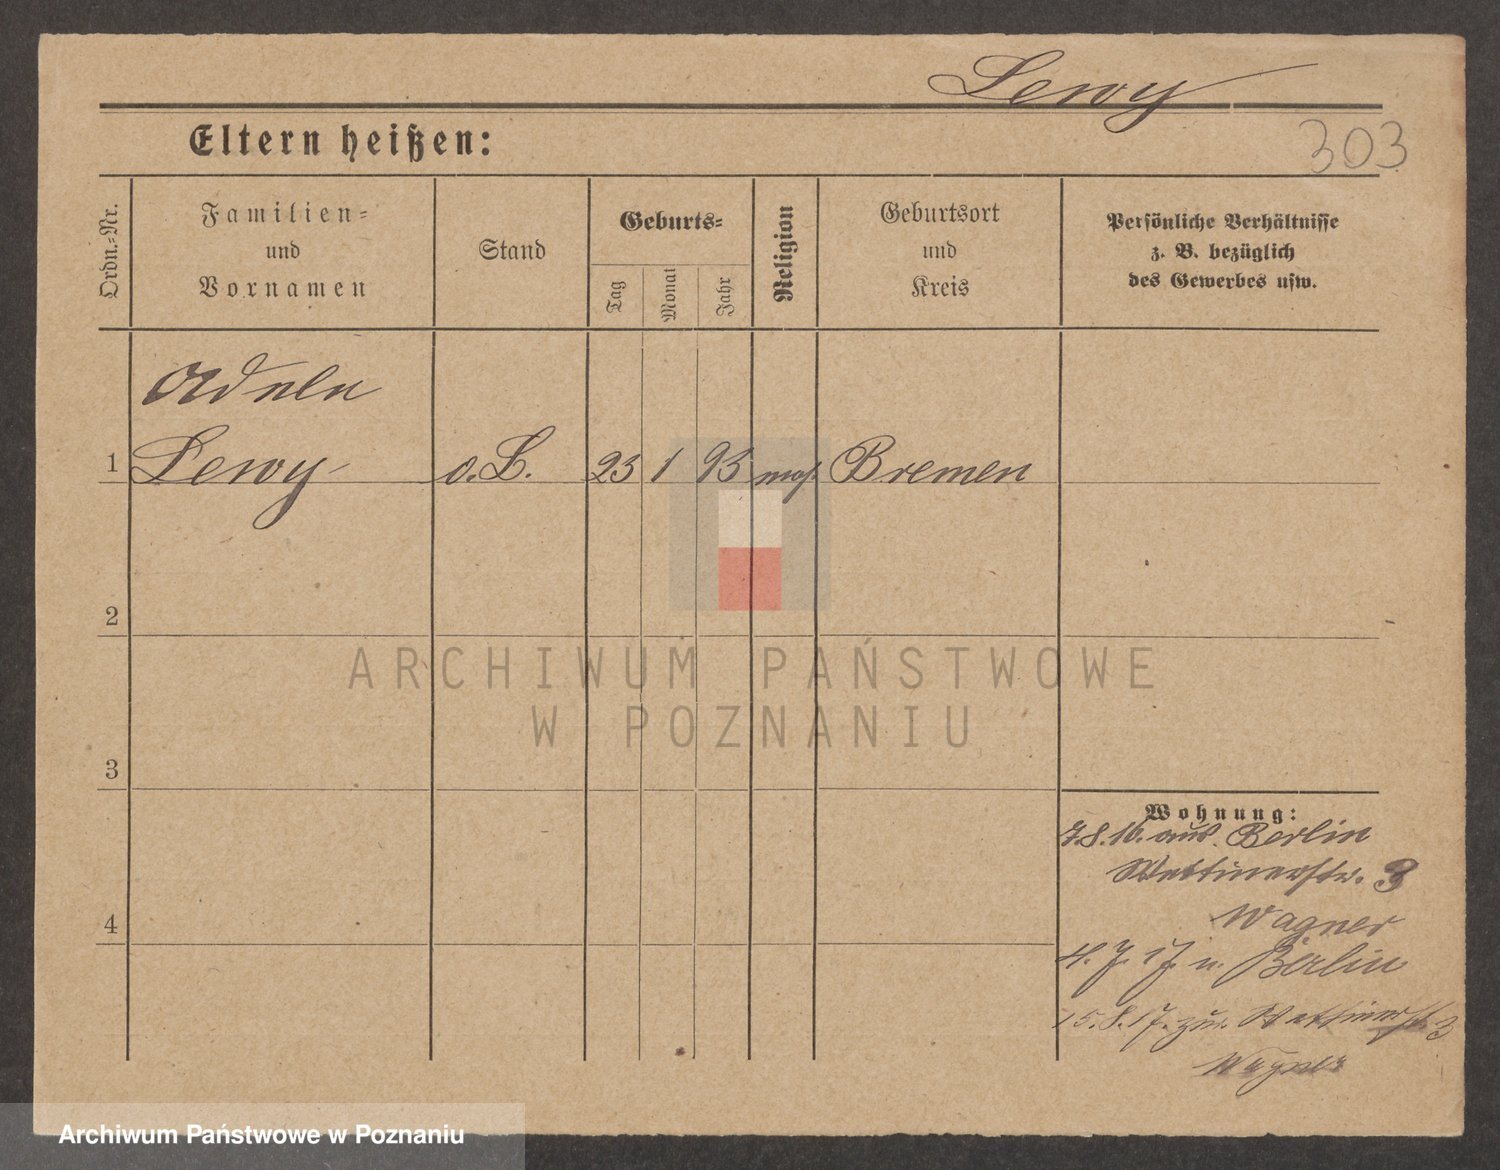 Lewy
Eltern heißen:
303
Ordn.-Nr.
Familien-
und
Vornamen
Stand
Geburts-
Tag
Monat
Jahr
Religion
Geburtsort
und
Kreis
Persönliche Verhältnisse
z. B. bezüglich
des Gewerbes usw.
Adele
1 Lewy o. B. 23 1 93 mos. Bremen
2
3
4
Wohnung:
7.8.16. aus Berlin
Wettinerstr. 3
Wagner
4. 7. 17 n. Berlin
15.8.17. zur. Wettinerstr. 3
Wagner
ARCHIWUM PAŃSTWOWE
W POZNANIU
Archiwum Państwowe w Poznaniu